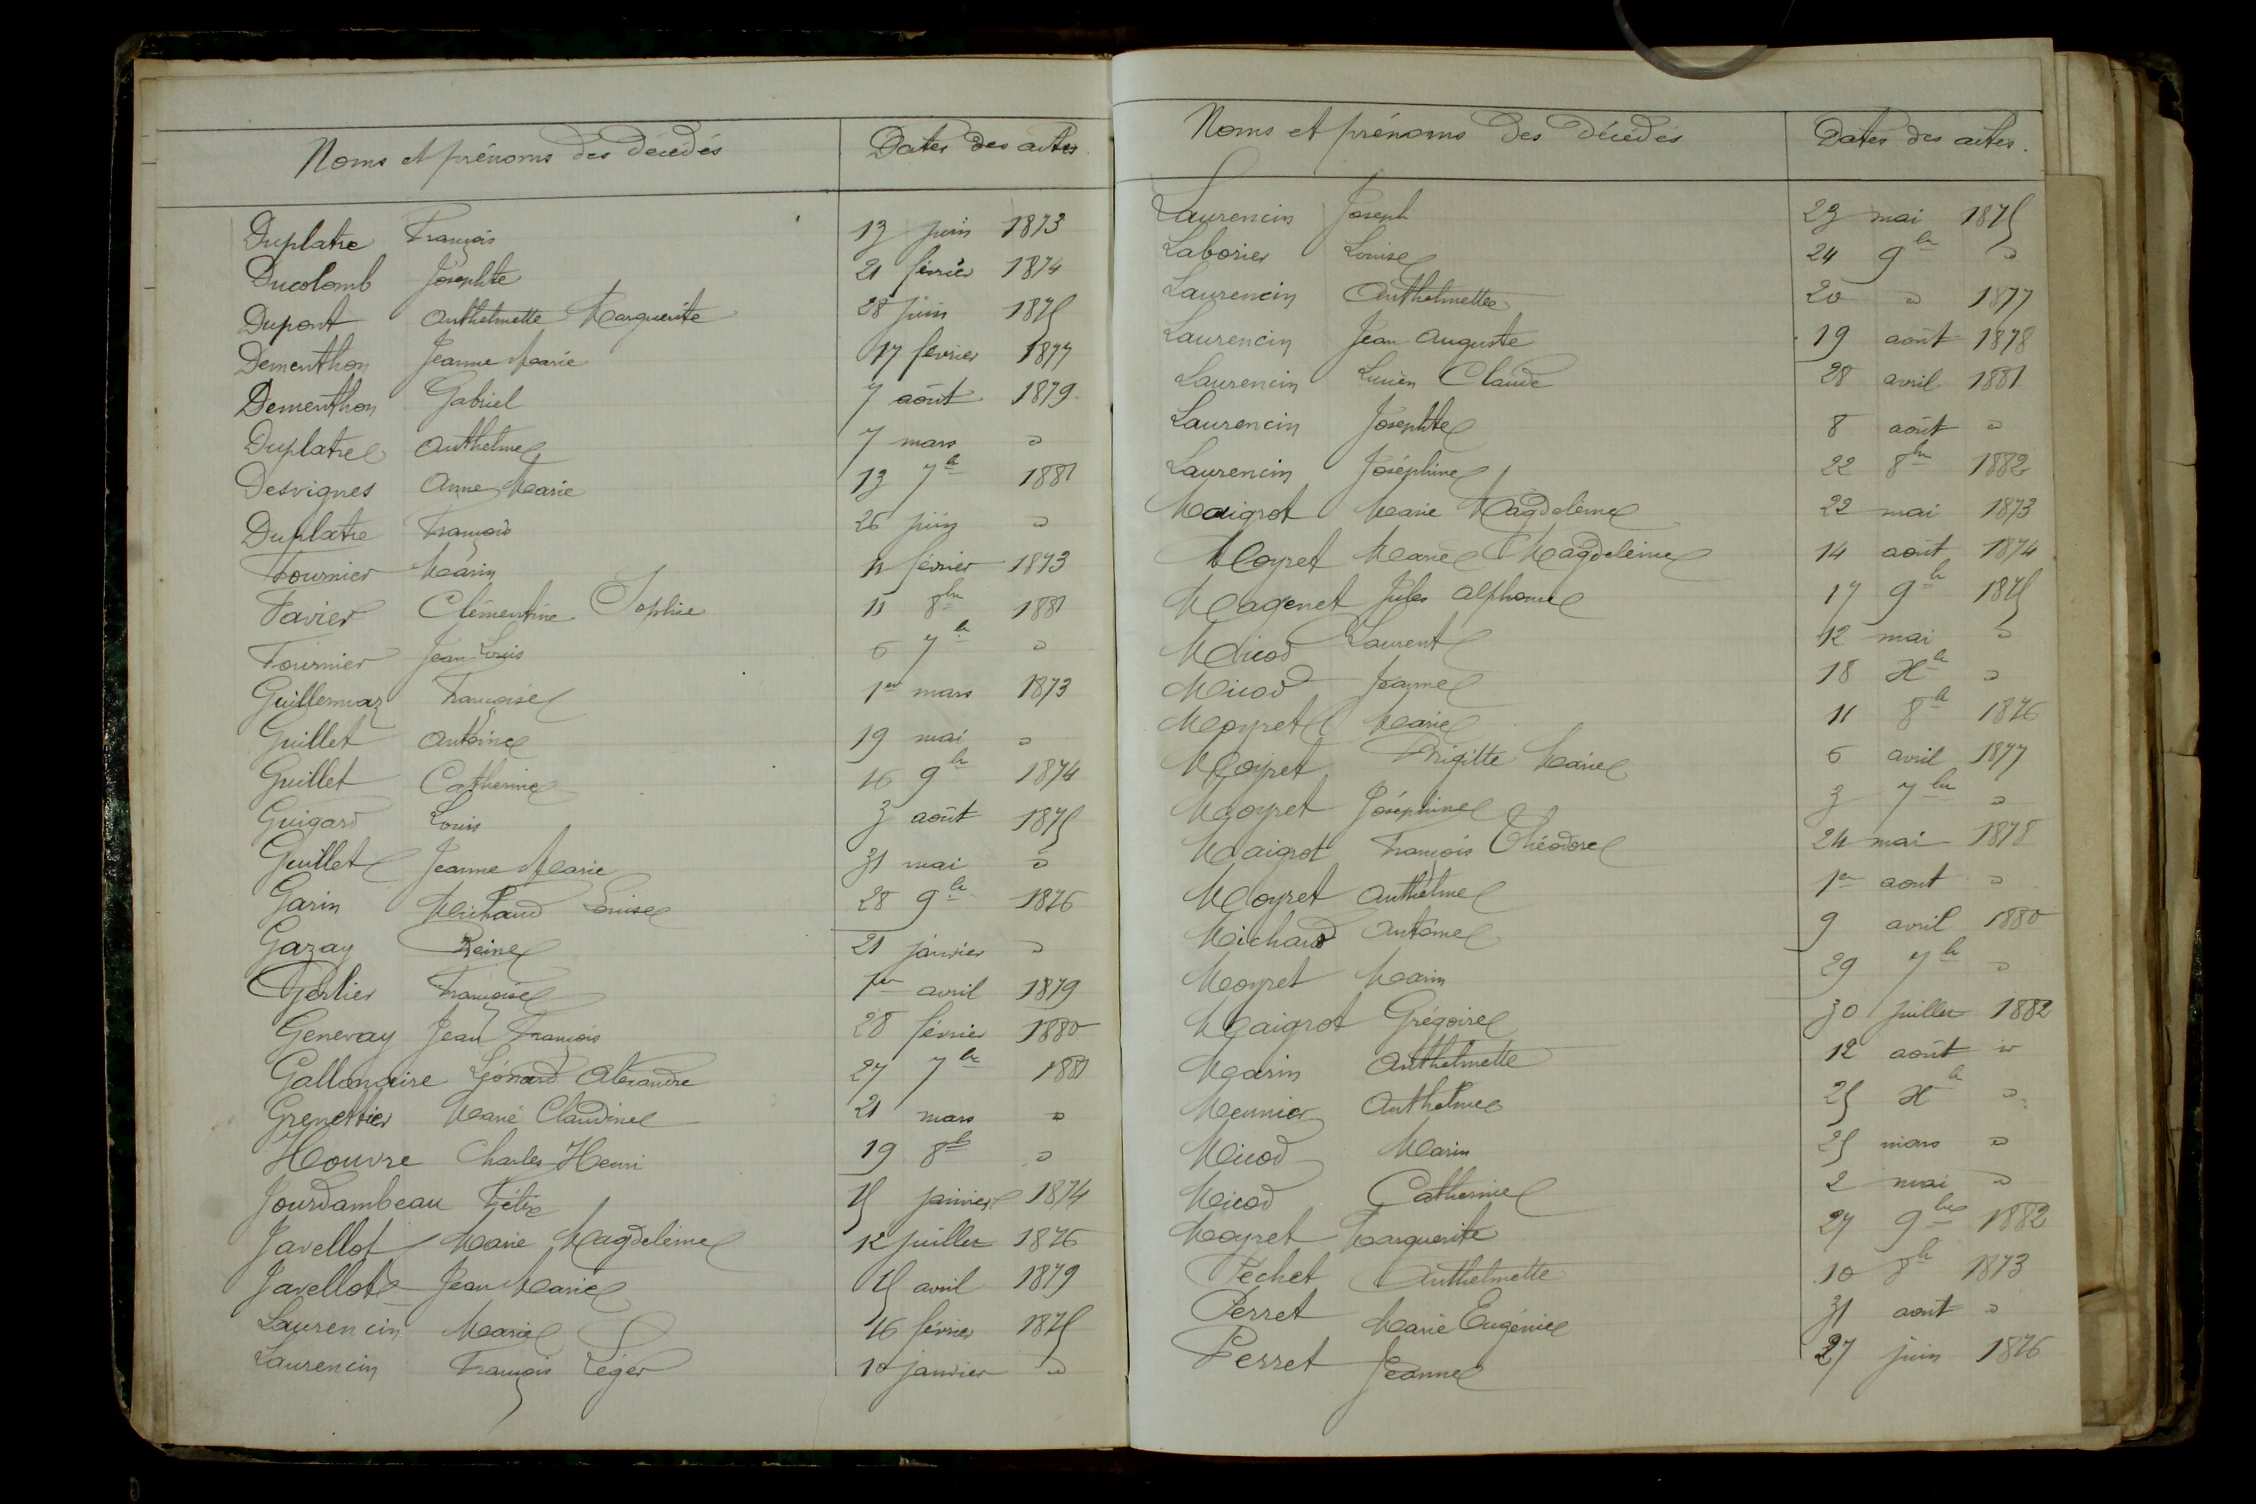 Noms et prénoms des décédés Dates des actes
Duplatre François 13 juin 1873
Ducolomb Josephte 21 février 1874
Dupont Anthelmette Marguerite 28 juin 1875
Dementhon Jeanne Marie 17 février 1877
Dementhon Gabriel 7 août 1879
Duplatre Anthelme 7 mars "
Desvignes Anne Marie 13 7bre 1881
Duplatre François 26 juin "
Fournier Marin 11 février 1873
Favier Clémentine Sophie 11 8bre 1881
Fournier Jean Louis 6 7bre "
Guillermaz Françoise 1er mars 1873
Guillet Antoine 19 mai "
Guillet Catherine 16 9bre 1874
Guigard Louis 3 août 1875
Guillet Jeanne Marie 31 mai "
Garin Michaud Louise 28 9bre 1876
Gazay Reine 21 janvier "
Gerlier Françoise 1er avril 1879
Genevay Jean François 28 février 1880
Gallonzaire Léonard Alexandre 27 7bre 1881
Grenettier Marie Claudine 21 mars "
Houvre Charles Henri 19 8bre "
Jourdambeau Félix 15 janvier 1874
Javellot Marie Magdeleine 12 juillet 1876
Javellot Jean Marie 15 avril 1879
Laurencin Marie 16 février 1875
Laurencin François Léger 10 janvier "
Noms et prénoms des décédés Dates des actes.
Laurencin Joseph 23 mai 1875
Laborier Louise 24 9bre "
Laurencin Anthelmette 20 " 1877
Laurencin Jean Auguste 19 août 1878
Laurencin Lucien Claude 28 avril 1881
Laurencin Josephte 8 août "
Laurencin Joséphine 22 8bre 1882
Maigrot Marie Magdeleine 22 mai 1873
Moyret Marie Magdeleine 14 août 1874
Magenet Jules Alphonse 17 9bre 1875
Micod Laurent 12 mai "
Micod Jeanne 18 Xbre "
Moyret Marie 11 8bre 1876
Moyret Brigitte Marie 6 avril 1877
Moyret Joséphine 3 7bre "
Maigrot François Théodore 24 mai 1878
Moyret Anthelme 1er aout "
Michaud Antoine 9 avril 1880
Moyret Marin 29 7bre "
Maigrot Grégoire 30 juillet 1882
Marin Anthelmette 12 août "
Meunier Anthelme 25 Xbre "
Micod Marin 25 mars "
Micod Catherine 2 mai "
Moyret Marguerite 27 9bre 1882
Péchet Anthelmette 10 8bre 1873
Perret Marie Eugénie 31 août "
Perret Jeanne 27 juin 1876